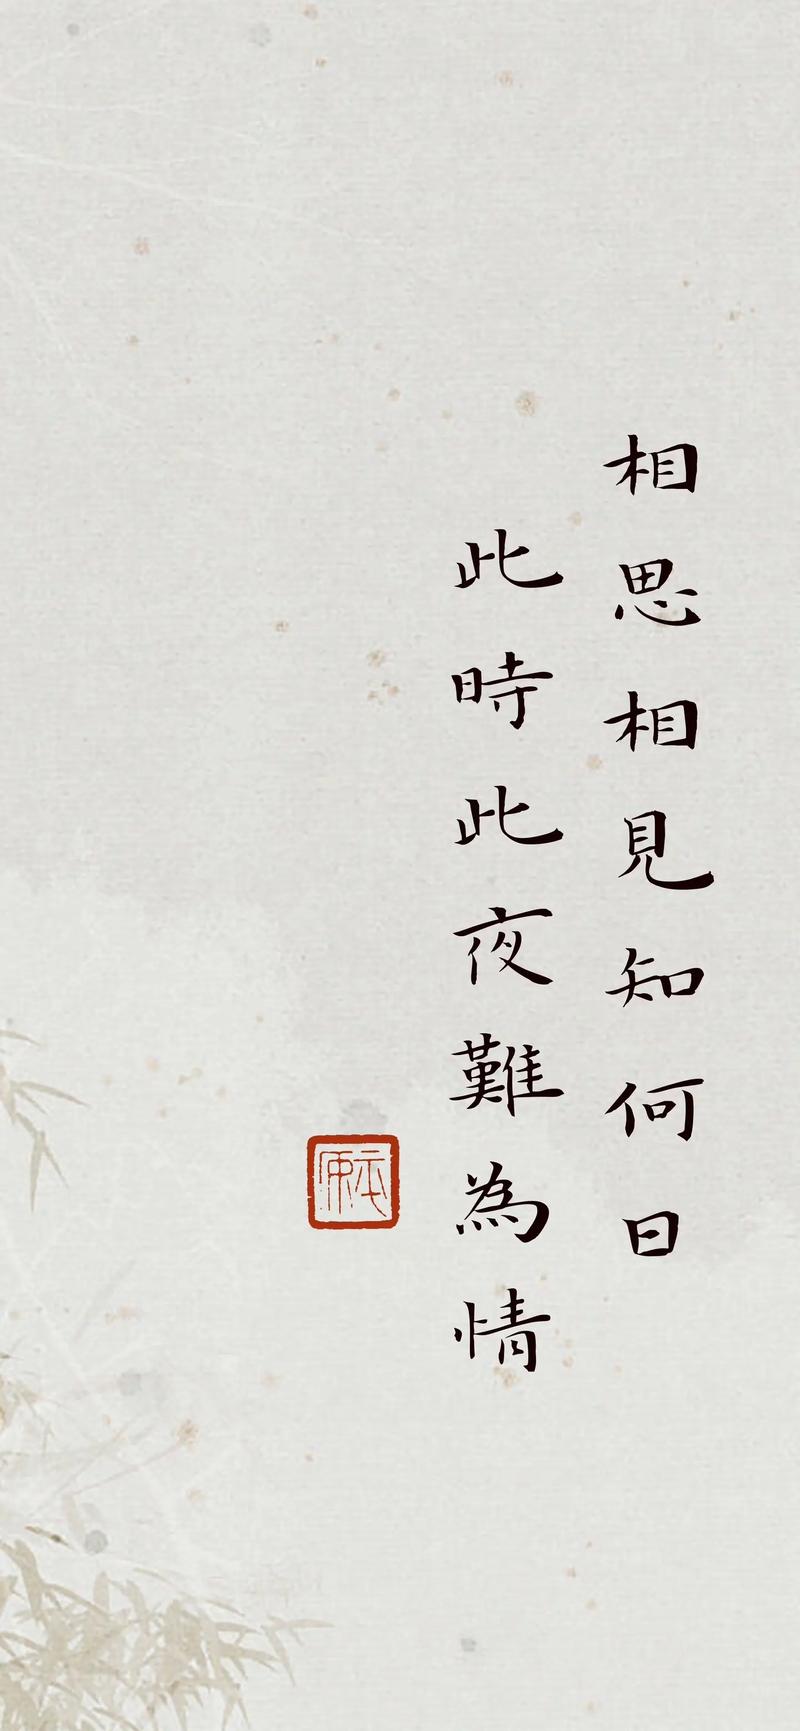 相思相見知何日
此時此夜難為情